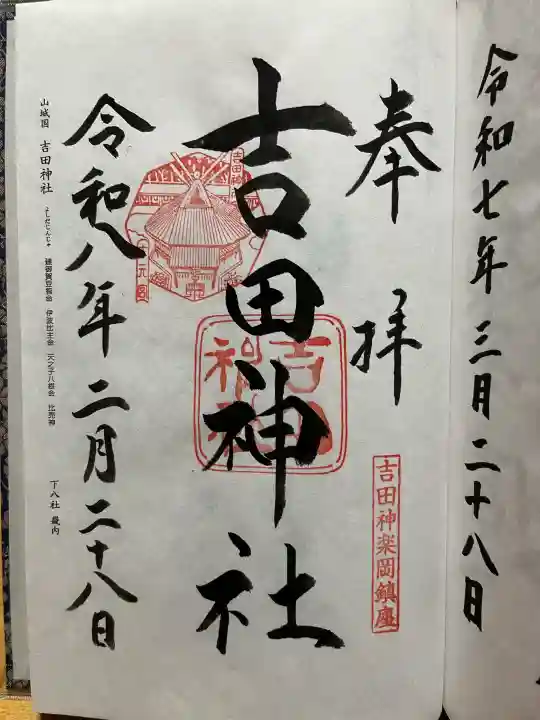 令和七年三月二十八日
奉拝
吉田神楽岡鎮座
吉田神社
吉田神社
吉田神社
令和八年二月二十八日
山城国 吉田神社 よしだじんじゃ 建御賀豆智命 伊波比主命 天之子八根命 比売神 下八社 畿内